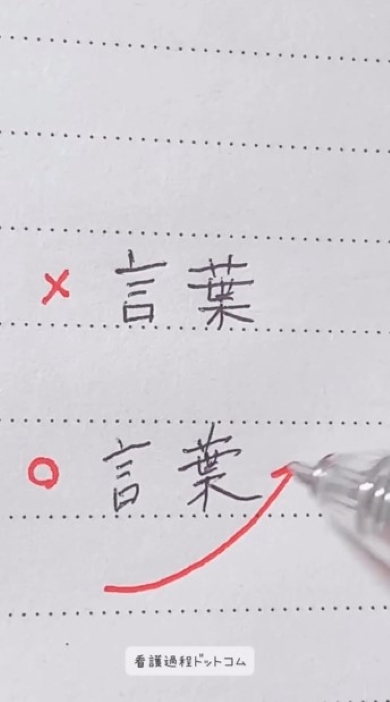 × 言葉
○ 言葉
看護過程ドットコム